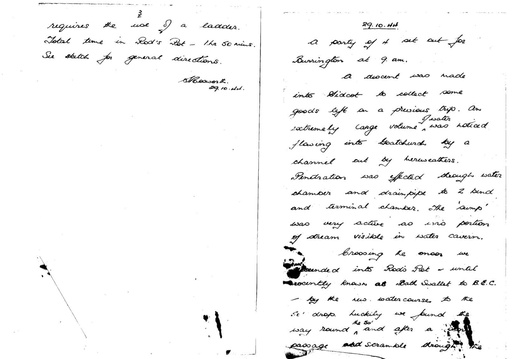 requires the use of a ladder.
Total time in Rod's Pot - 1hr 50 mins.
See sketch for general directions.
29.10.44.
29.10.44
A party of 4 set out for
Burrington at 9 am.
A descent was made
into Sidcot to collect some
goods left on a previous trip. An
extremely large volume of water was noticed
flowing into Goatchurch by a
channel cut by
Penetration was effected through water
chamber and drainpipe to Z bend
and terminal chamber. The 'sump'
was very active as was portion
of stream visible in water cavern.
Crossing the moor we
into Rod's Pot - until
recently known as Bath Swallet to B.E.C.
- by the watercourse to the
drop. Luckily we found the
way round and after a
passage and scramble through the